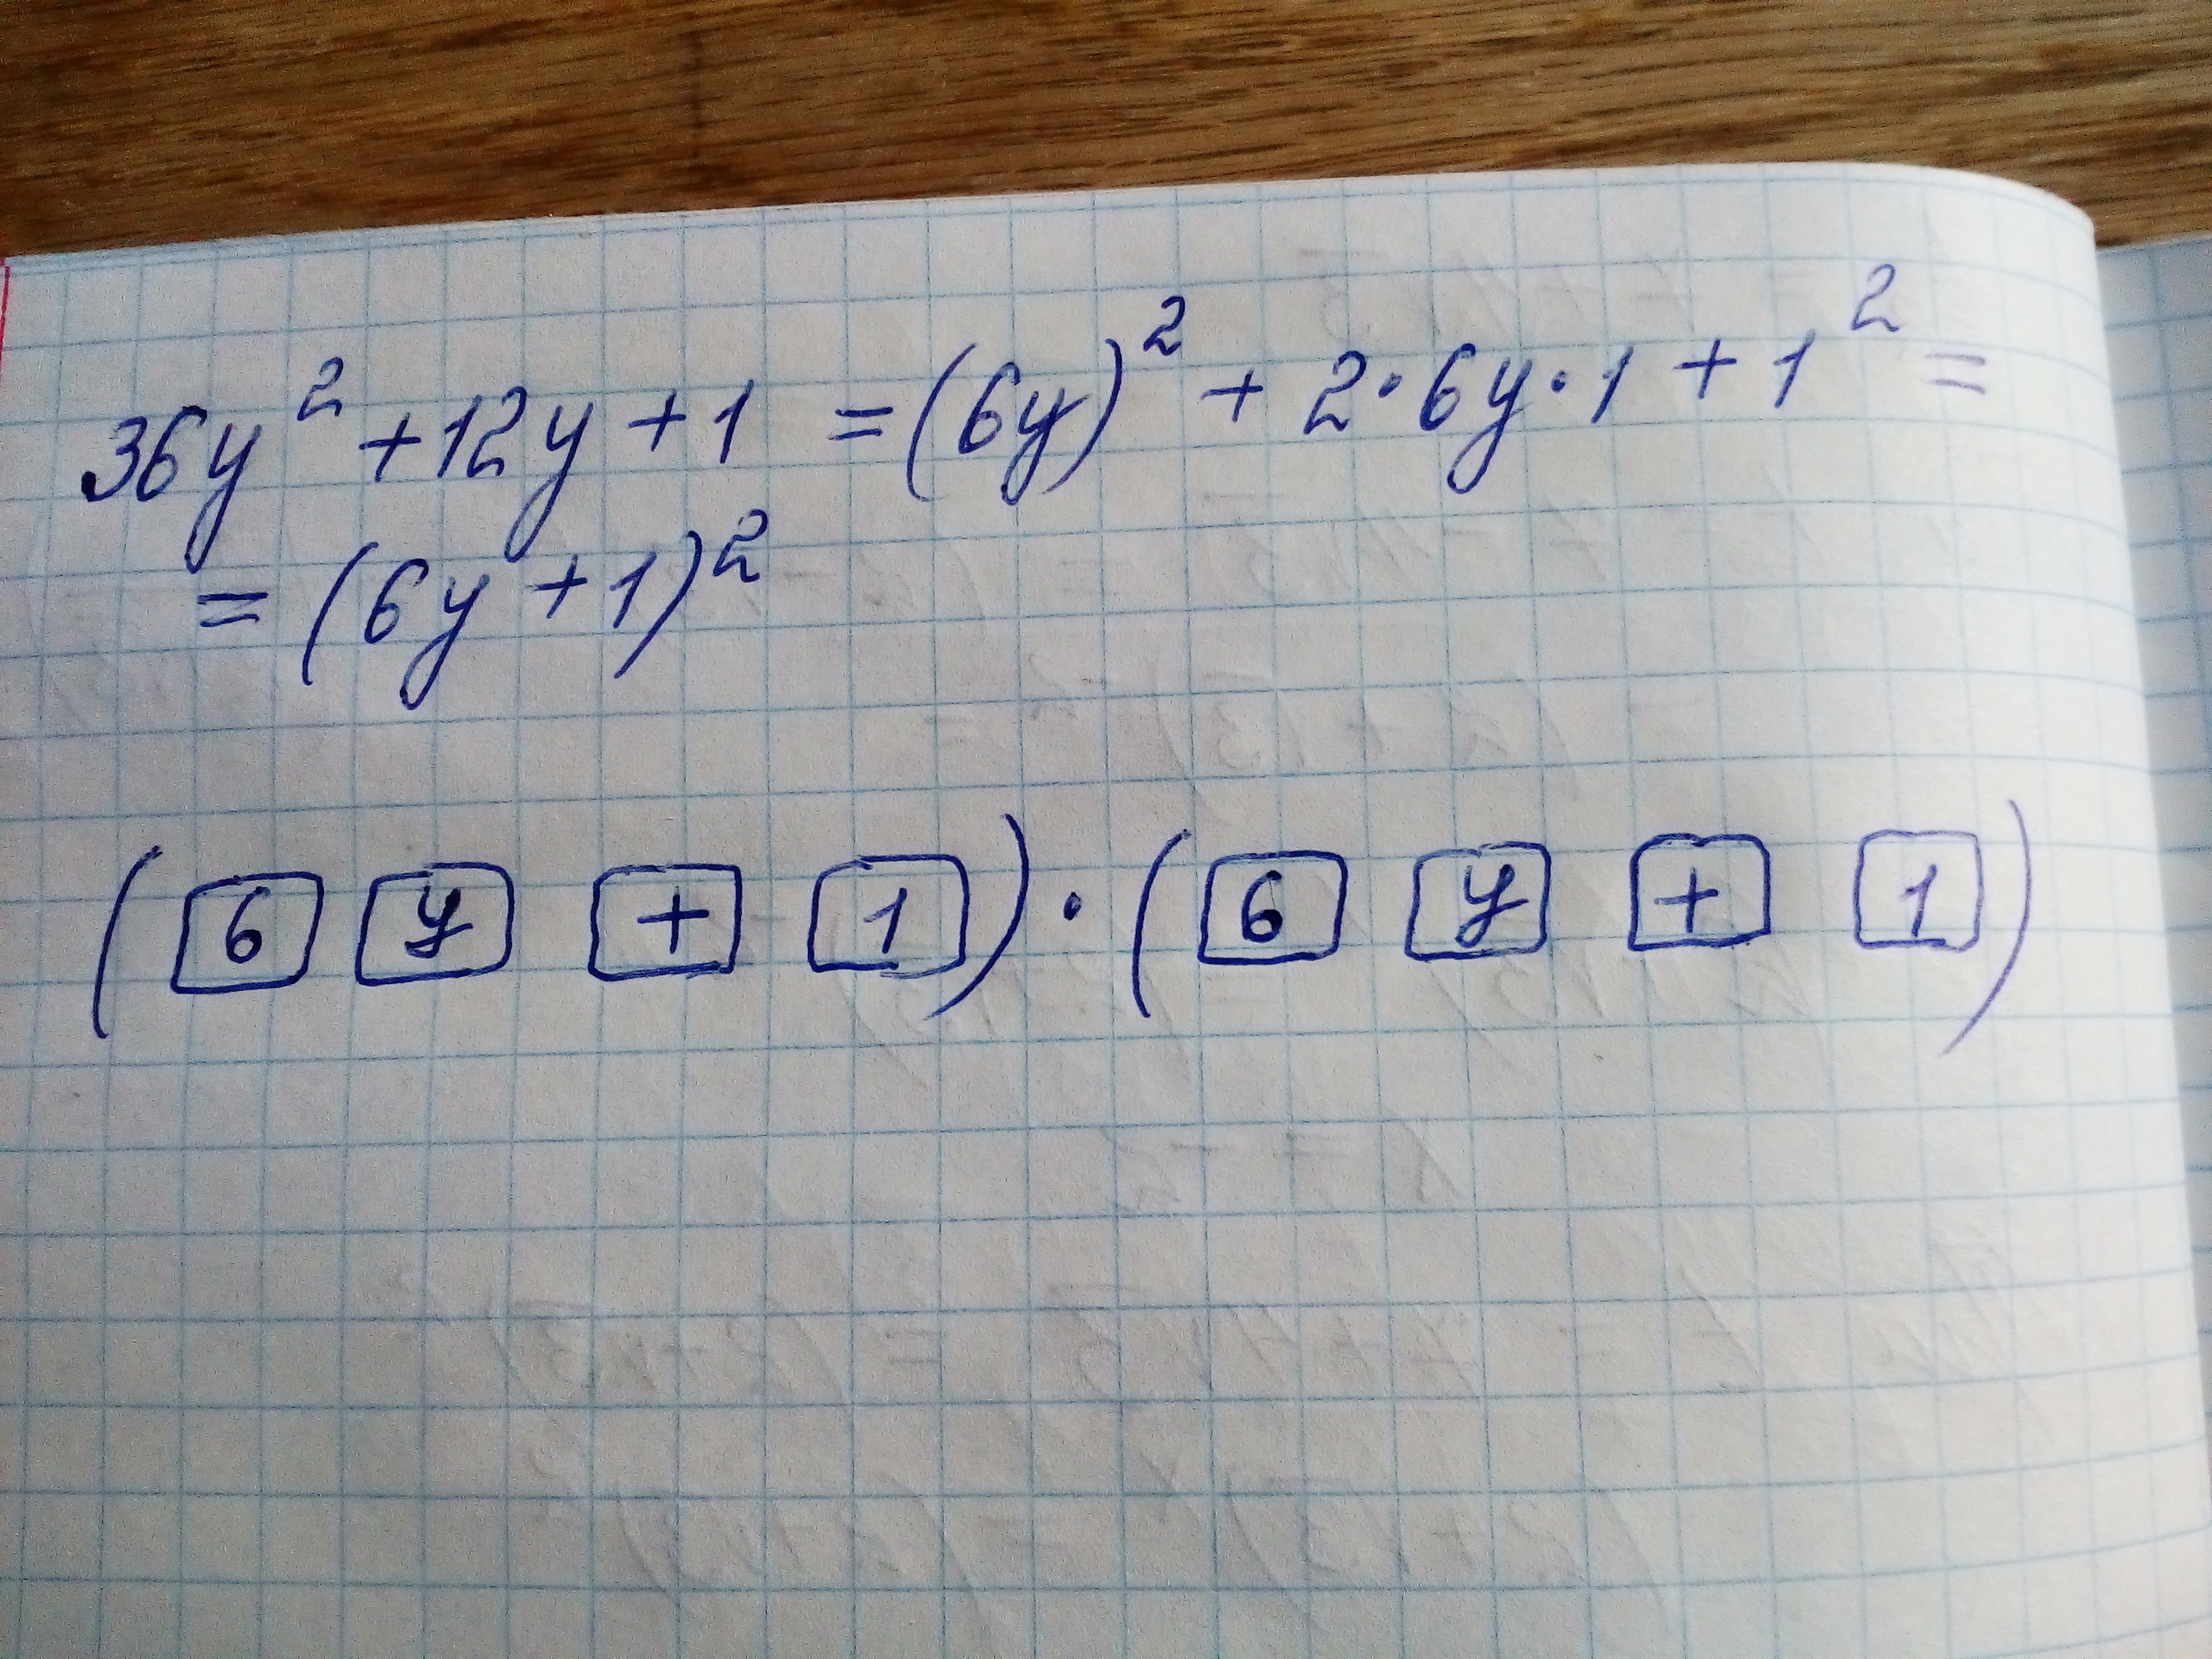 36y² + 12y + 1 = (6y)² + 2·6y·1 + 1² =
= (6y + 1)²
(6 y + 1)·(6 y + 1)